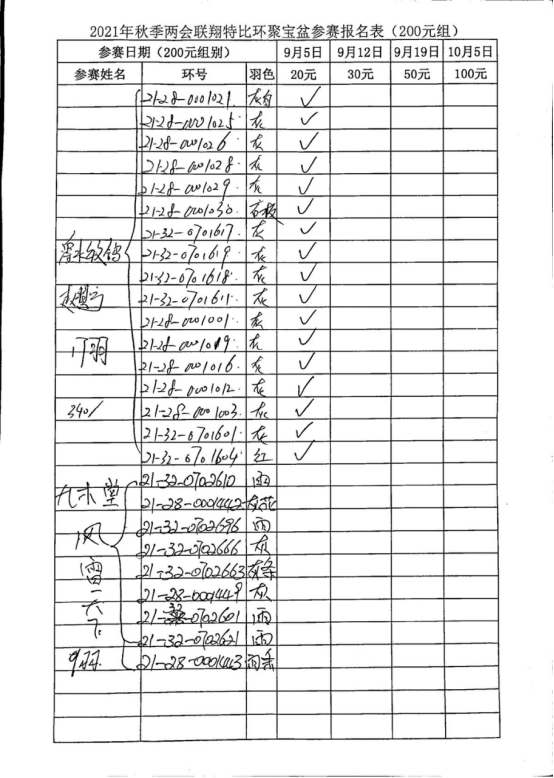 2021年秋季两会联翔特比环聚宝盆参赛报名表（200元组）
参赛日期（200元组别） 9月5日 9月12日 9月19日 10月5日
参赛姓名 环号 羽色 20元 30元 50元 100元
21-28-0001021 灰白 ✓
21-28-0001025 灰 ✓
21-28-0001026 灰 ✓
21-28-0001028 灰 ✓
21-28-0001029 灰 ✓
21-28-0001030 ✓
21-32-0701617 灰 ✓
21-32-0701619 灰 ✓
21-32-0701618 灰 ✓
21-32-0701611 灰 ✓
21-28-0001001 灰 ✓
17羽 21-28-0001019 灰 ✓
21-28-0001016 灰 ✓
21-28-0001012 灰 ✓
340/ 21-28-0001003 灰 ✓
21-32-0701601 灰 ✓
21-32-0701604 红 ✓
九木堂 21-32-0702610 雨
21-28-0001442 灰花
风 21-32-0702696 雨
21-32-0702666 灰
雷 21-32-0702663 灰条
一 21-28-0001449 灰
六 21-32-0702601 雨
飞 21-32-0702621 雨
9羽 21-28-0001443